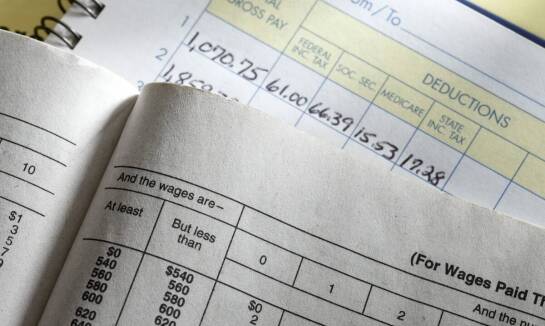 /To
GROSS PAY
DEDUCTIONS
FEDERAL INC. TAX
SOC. SEC
MEDICARE
STATE INC. TAX
1
1,070.75 61.00 66.39 15.53 17.28
2
10
$1
3
5
7
And the wages are–
At least
But less than
0
1
2
(For Wages Paid
And the
$0
540
560
580
600
620
$540
560
580
600
620
$0
2